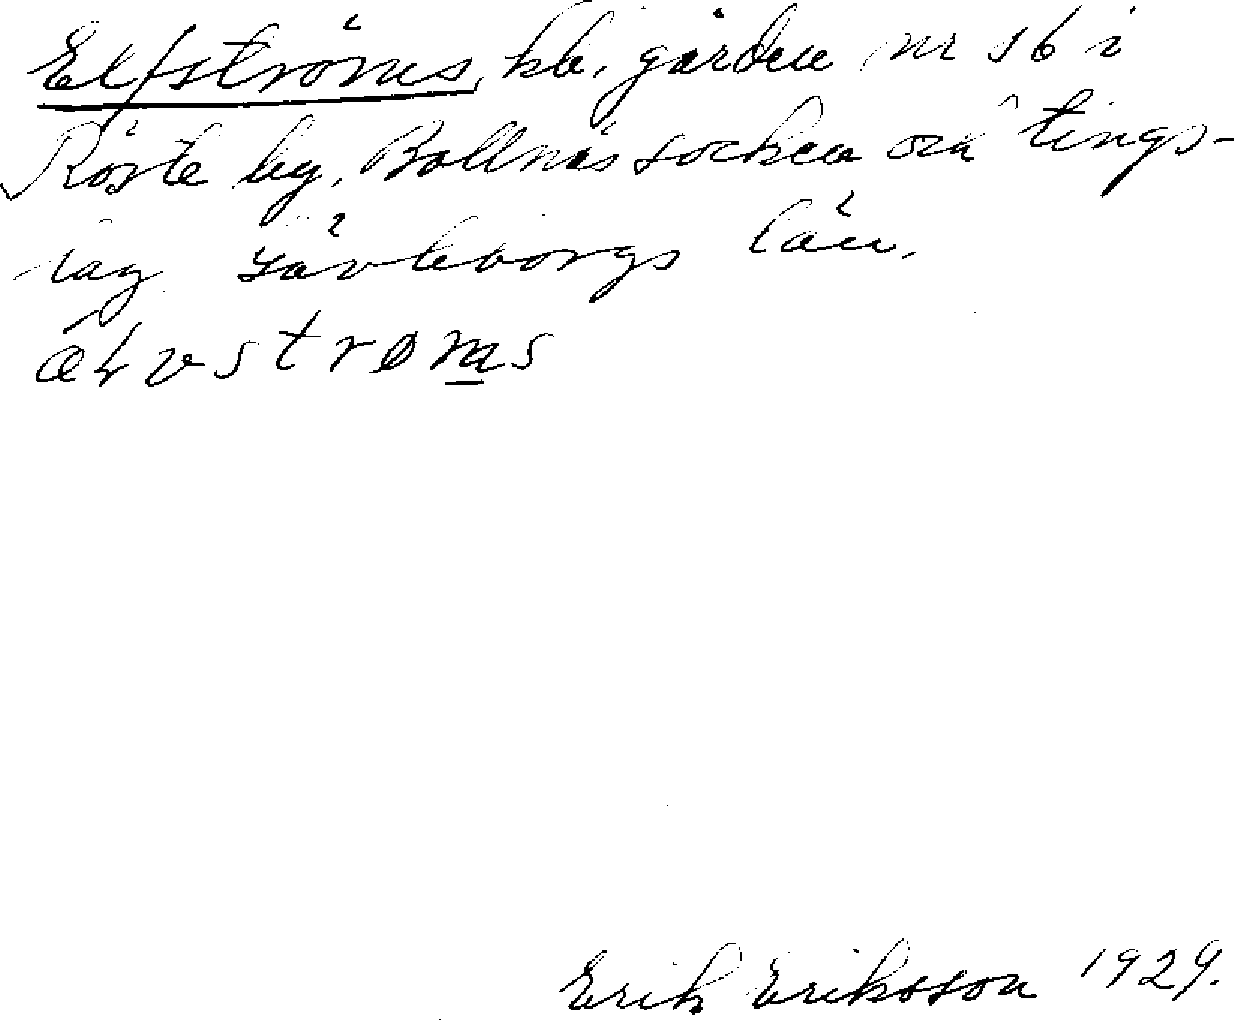 Elfströms, hb. gården nr 16 i
Röste by, Bollnäs socken och tings-
lag Gävleborgs län.
Erik Eriksson 1929.